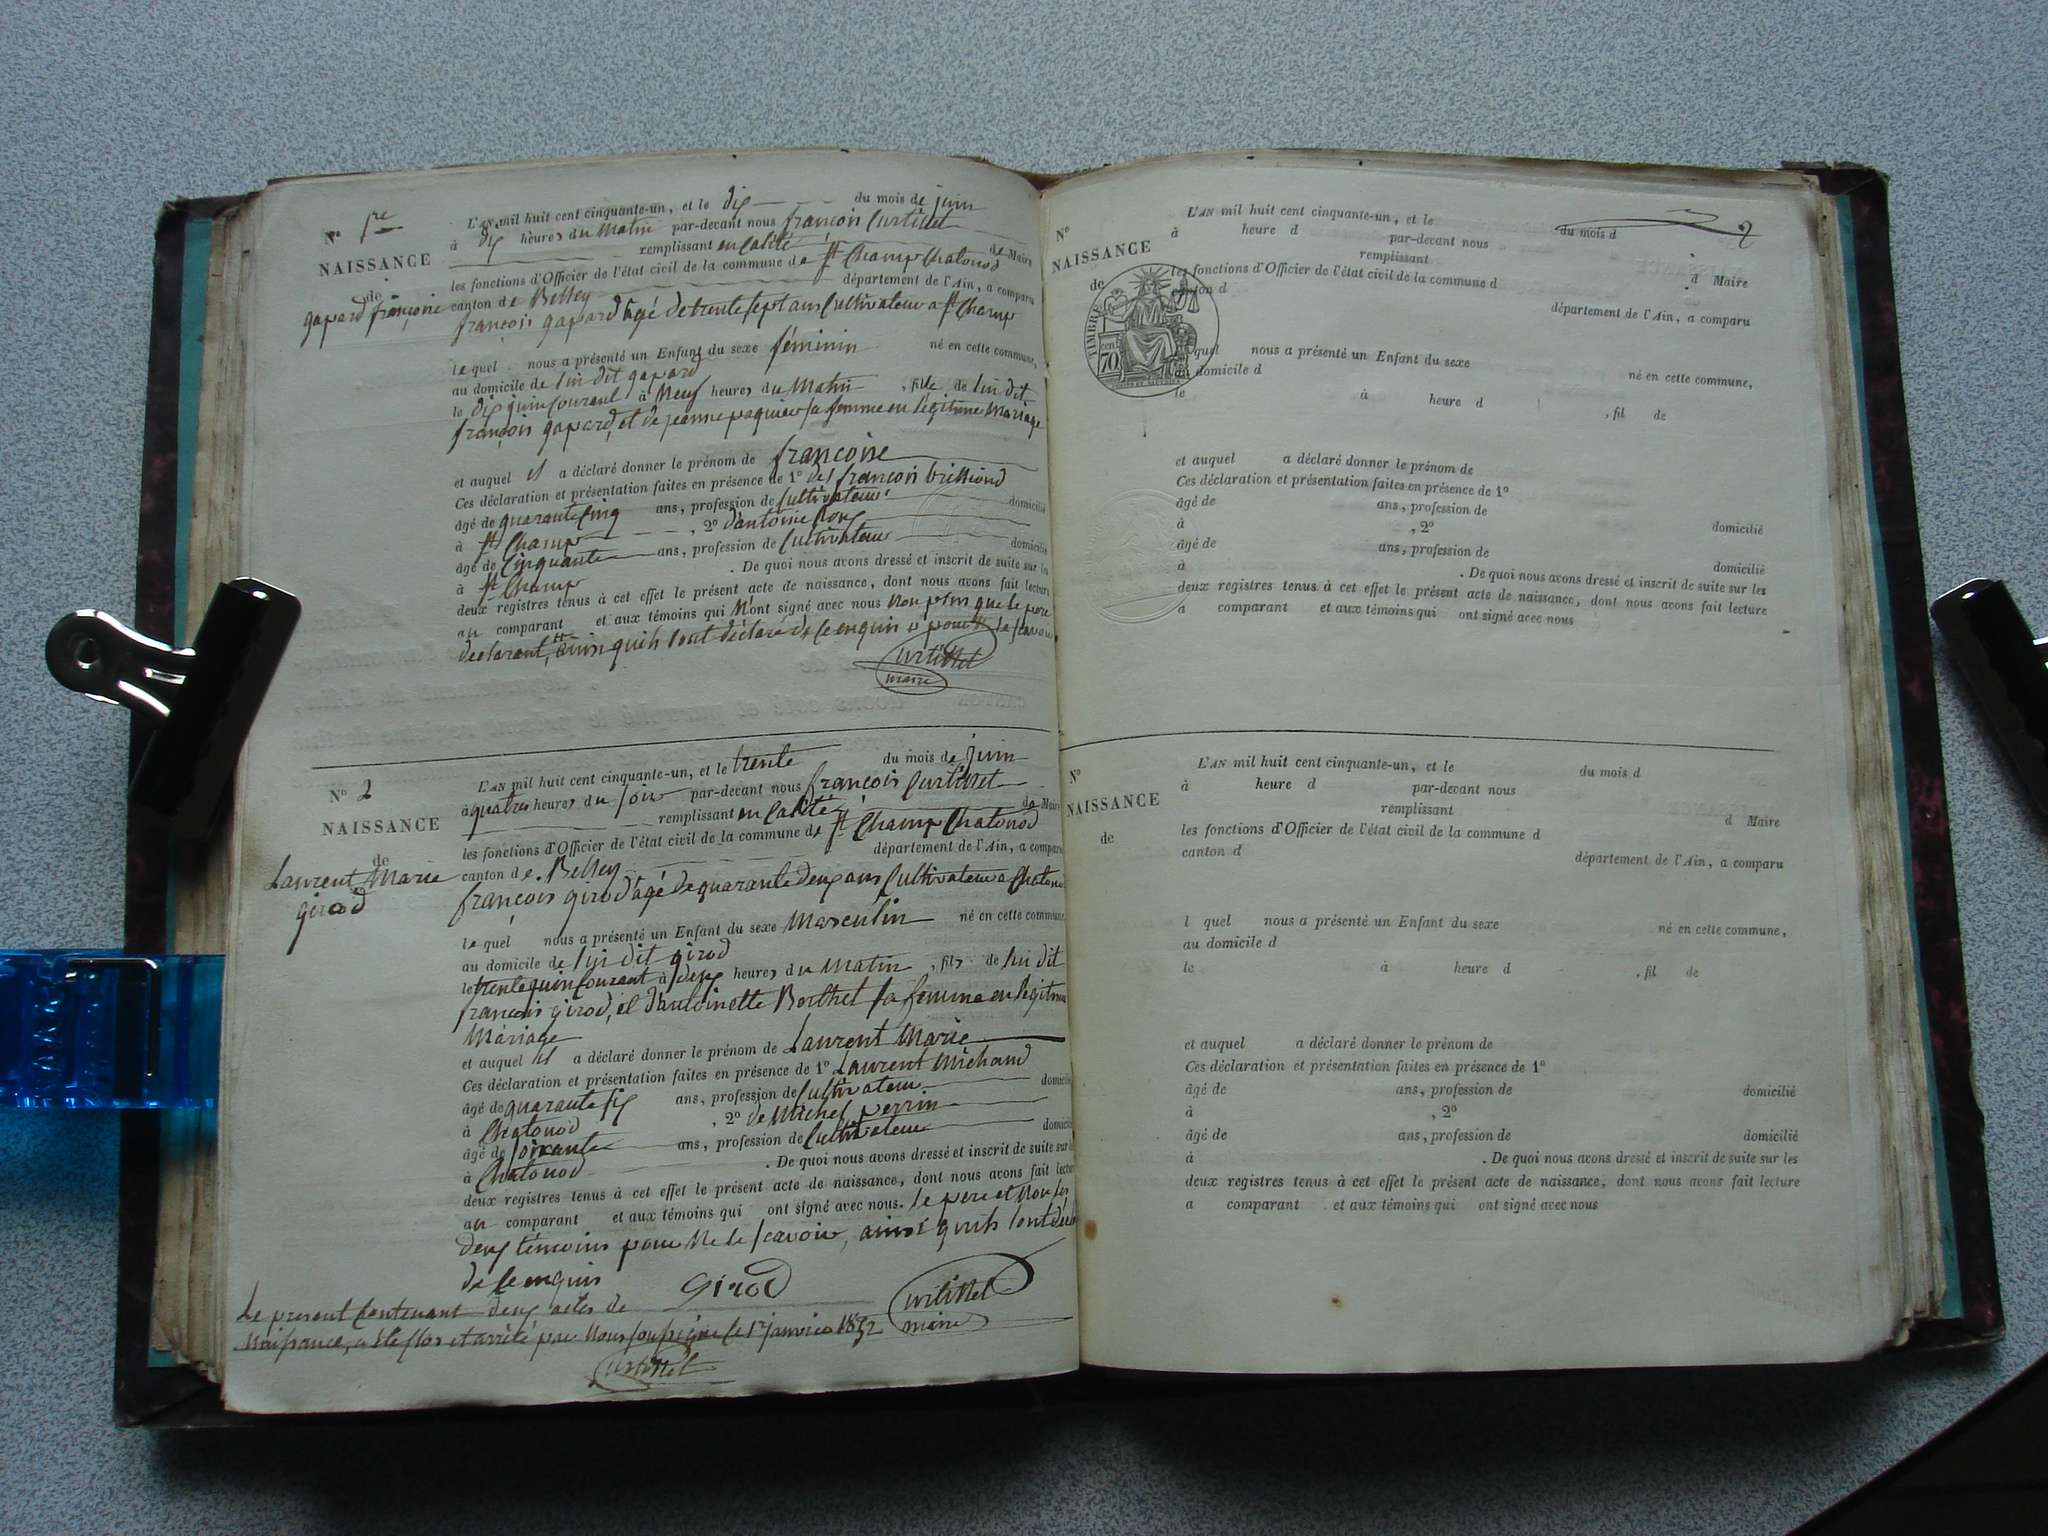 N° 1re
NAISSANCE
de
gapard françoise
L'AN mil huit cent cinquante-un, et le dix du mois de juin
à dix heures du Matin par-devant nous françois Curtillet
remplissant en Calité de Maire
les fonctions d'Officier de l'état civil de la commune de St Champ Chatonod
canton de Belley département de l'Ain, a comparu
françois gapard âgé de trente sept ans Cultivateur a St Champ
le quel nous a présenté un Enfant du sexe féminin né en cette commune,
au domicile de lui dit gapard
le dix juin Courant à Neuf heures du Matin , fille de lui dit
françois gapard, et de jeanne paquier sa femme en légitime Mariage
et auquel il a déclaré donner le prénom de françoise
Ces déclaration et présentation faites en présence de 1° de françois brilliond
âgé de quarante Cinq ans, profession de Cultivateur domicilié
à St Champ , 2° d'antoine Roux
âgé de Cinquante ans, profession de Cultivateur domicilié
à St Champ . De quoi nous avons dressé et inscrit de suite sur les
deux registres tenus à cet effet le présent acte de naissance, dont nous avons fait lecture
au comparant et aux témoins qui N'ont signé avec nous Non plus que le pere
declarant, ainsi quils l'ont déclaré de Ce enquis pour Ne le scavoir
Curtillet
maire
N° 2
NAISSANCE
de
Laurent Marie
girod
L'AN mil huit cent cinquante-un, et le trente du mois de juin
à quatre heures du soir par-devant nous françois Curtillet
remplissant en Calité de Maire
les fonctions d'Officier de l'état civil de la commune de St Champ Chatonod
canton de Belley département de l'Ain, a comparu
françois girod âgé de quarante deux ans Cultivateur a Chatonod
le quel nous a présenté un Enfant du sexe Masculin né en cette commune,
au domicile de lui dit girod
le trente juin Courant à deux heures du Matin , fils de lui dit
françois girod, et d'antoinette Berthet sa femme en legitime
Mariage
et auquel il a déclaré donner le prénom de Laurent Marie
Ces déclaration et présentation faites en présence de 1° Laurent Michaud
âgé de quarante six ans, profession de Cultivateur domicilié
à Chatonod , 2° de Michel perrin
âgé de soixante ans, profession de Cultivateur domicilié
à Chatonod . De quoi nous avons dressé et inscrit de suite sur les
deux registres tenus à cet effet le présent acte de naissance, dont nous avons fait lecture
au comparant et aux témoins qui ont signé avec nous. le pere et Non les
deux témoins pour Ne le scavoir, ainsi quils l'ont déclaré
de Ce enquis Girod
Curtillet
maire
Le present Contenant deux actes de
Naissance, a été clos et arrêté par Nous soussigné le 1er janvier 1852
Curtillet
2
N°
NAISSANCE
de
TIMBRE
70 cent
L'AN mil huit cent cinquante-un, et le du mois d
à heure d par-devant nous
remplissant
d Maire
les fonctions d'Officier de l'état civil de la commune d
canton d
département de l'Ain, a comparu
quel nous a présenté un Enfant du sexe né en cette commune,
domicile d
le à heure d , fil de
et auquel a déclaré donner le prénom de
Ces déclaration et présentation faites en présence de 1°
âgé de ans, profession de domicilié
à , 2°
âgé de ans, profession de domicilié
à . De quoi nous avons dressé et inscrit de suite sur les
deux registres tenus à cet effet le présent acte de naissance, dont nous avons fait lecture
a comparant et aux témoins qui ont signé avec nous
N°
NAISSANCE
de
L'AN mil huit cent cinquante-un, et le du mois d
à heure d par-devant nous
remplissant
d Maire
les fonctions d'Officier de l'état civil de la commune d
canton d département de l'Ain, a comparu
l quel nous a présenté un Enfant du sexe né en cette commune,
au domicile d
le à heure d , fil de
et auquel a déclaré donner le prénom de
Ces déclaration et présentation faites en présence de 1°
âgé de ans, profession de domicilié
à , 2°
âgé de ans, profession de domicilié
à . De quoi nous avons dressé et inscrit de suite sur les
deux registres tenus à cet effet le présent acte de naissance, dont nous avons fait lecture
a comparant et aux témoins qui ont signé avec nous